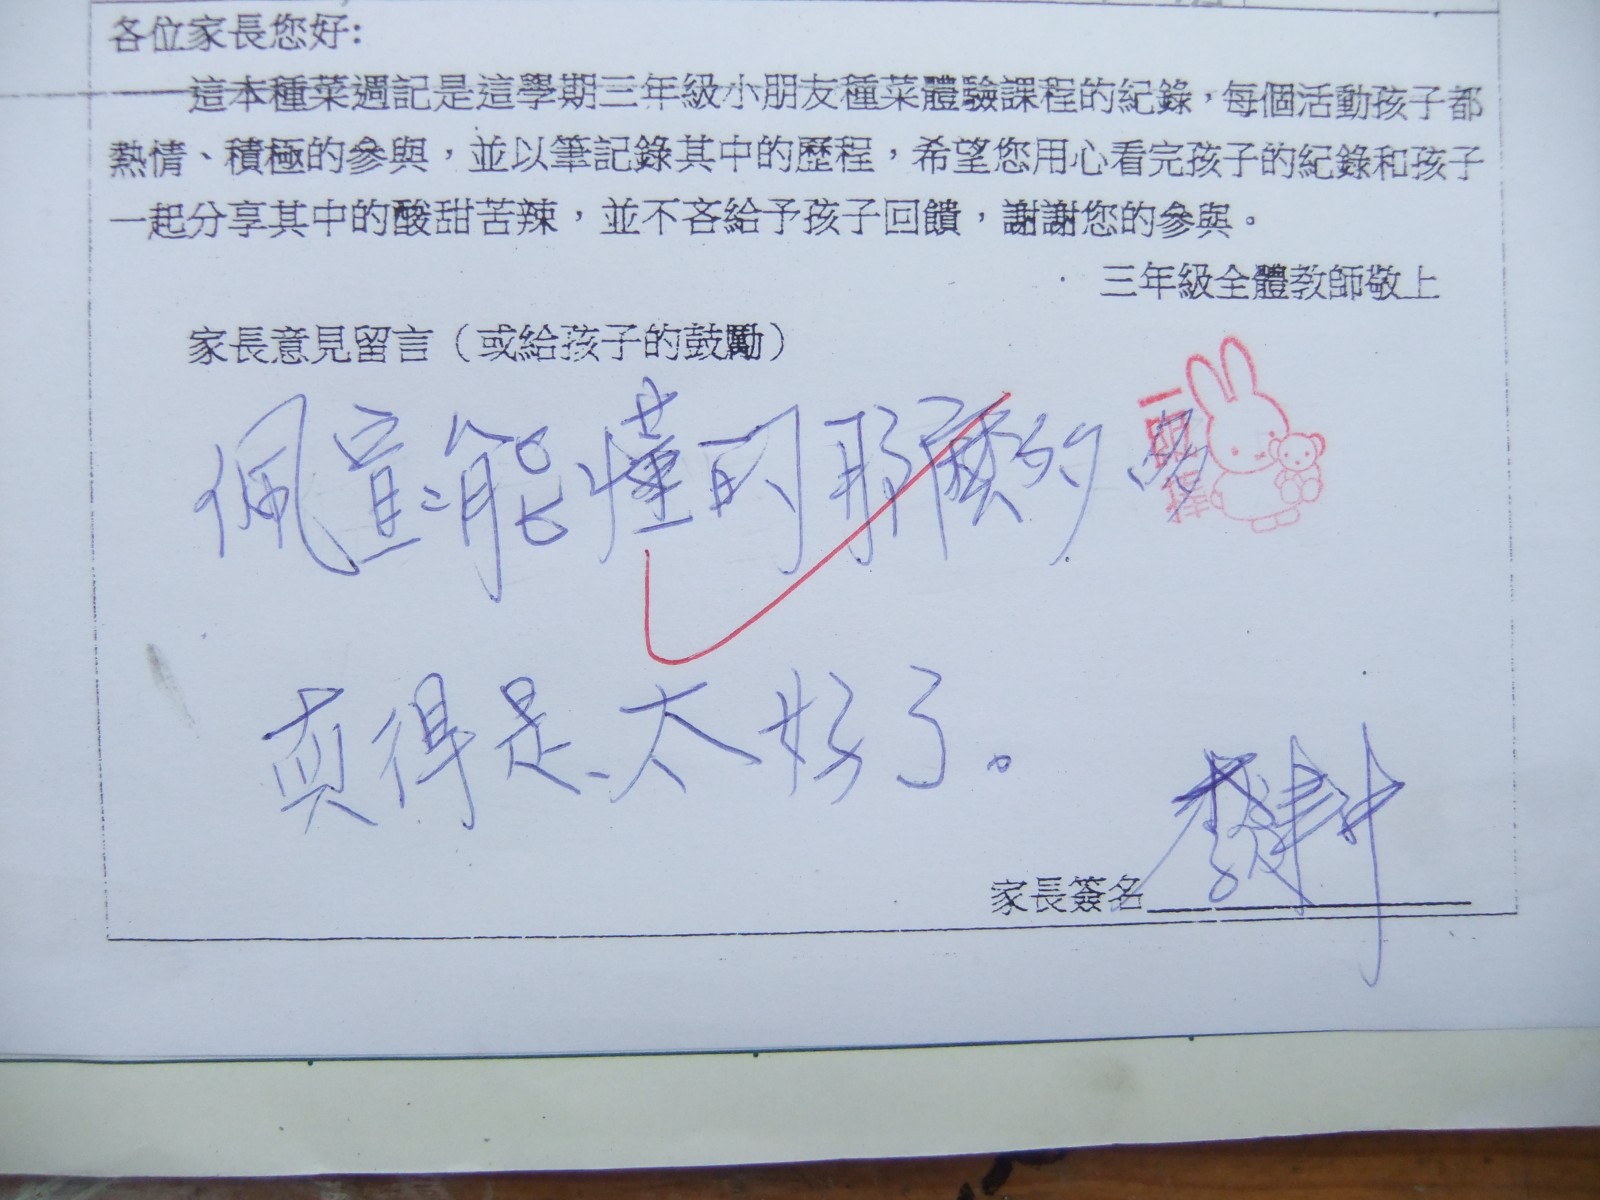 各位家長您好:
這本種菜週記是這學期三年級小朋友種菜體驗課程的紀錄，每個活動孩子都
熱情、積極的參與，並以筆記錄其中的歷程，希望您用心看完孩子的紀錄和孩子
一起分享其中的酸甜苦辣，並不吝給予孩子回饋，謝謝您的參與。
三年級全體教師敬上
家長意見留言（或給孩子的鼓勵）
佩萱能懂的那麼的多
一級棒
真得是太好了。
家長簽名